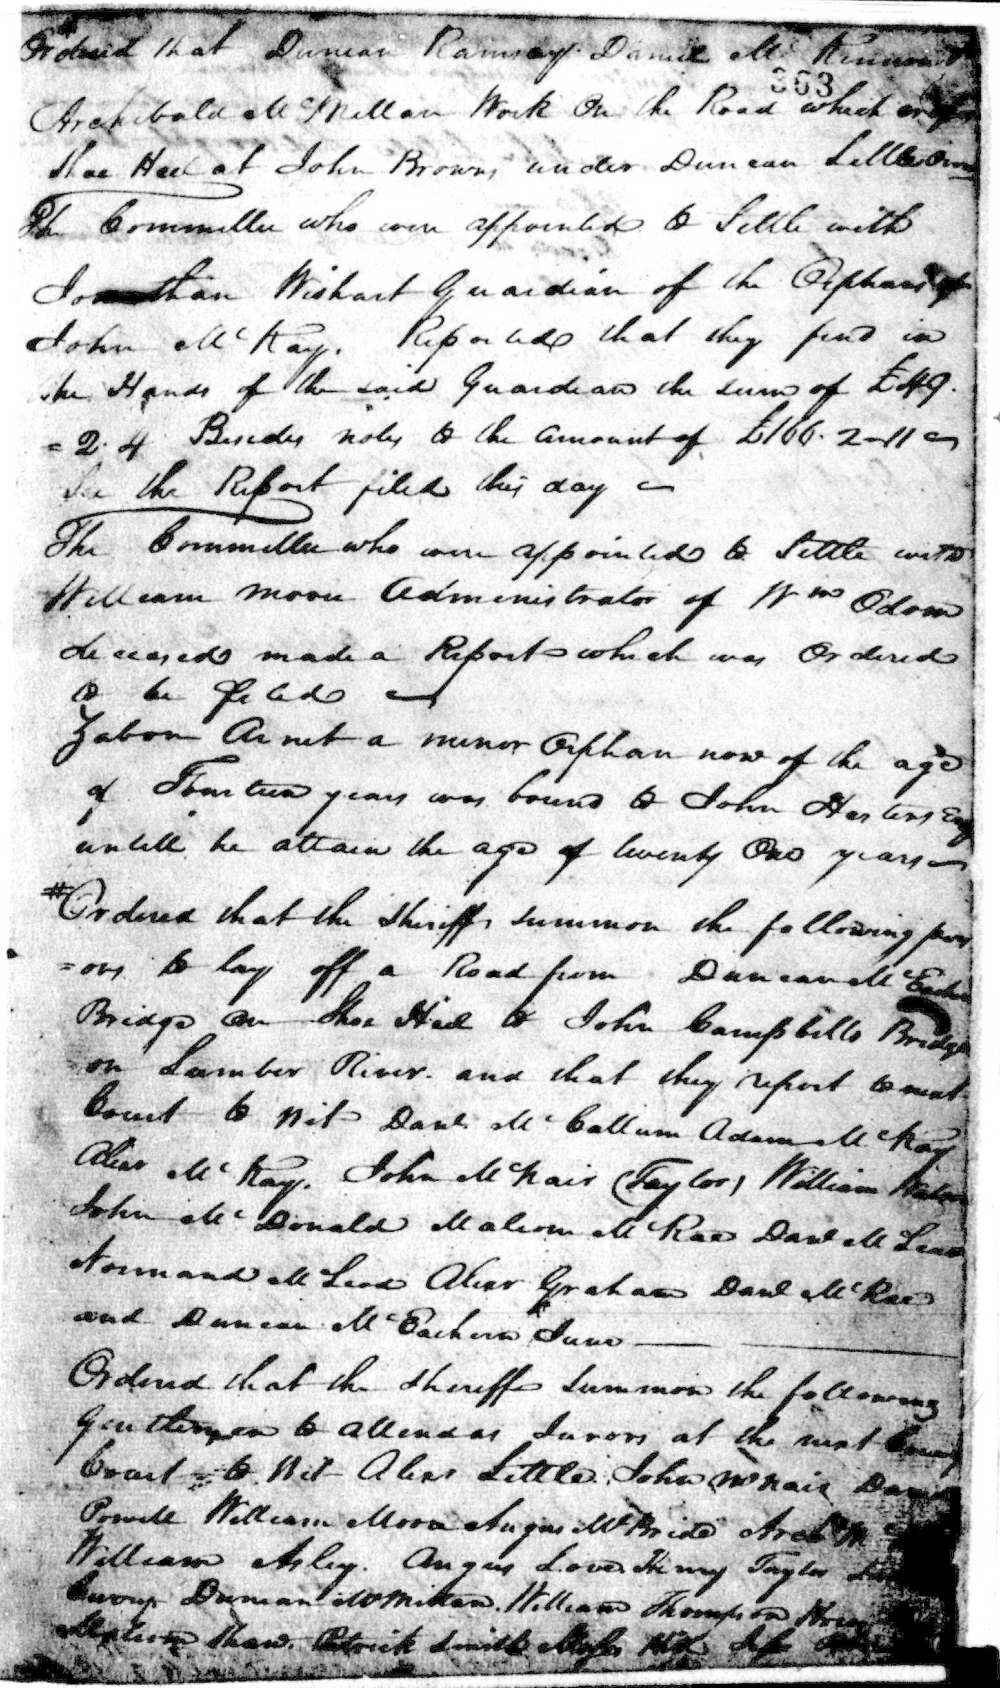 # Ordered that Duncan Ramsay Daniel Mc
363
Archibald McMillan Work On the Road which
Shoe Heel at John Browns under Duncan Little
The Committee who were appointed to Settle with
Jonathan Wishart Guardian of the Orphans of
John McKay. Reported that they find in
the Hands of the said Guardian the sum of £49.
= 2. 4 Besides notes to the amount of £166. 2-11
See the Report filed this day
The Committee who were appointed to Settle with
William Moore Administrator of Wm Odom
deceased made a Report which was Ordered
to be filed
Arnet a minor Orphan now of the age
of Fourteen years was bound to John Hastens Esq
untill he attain the age of twenty One years
# Ordered that the Sheriff summon the following pers
= ons to lay off a Road from Duncan McEachern
Bridge on Shoe Heel to John Campbells Bridge
on Lumber River. and that they report to next
Court to Wit Danl. McCallum Adam McKay
Alexr McKay. John McNair (Taylor) William
John McDonald Malcom McRae Danl McLean
Normand McLeod Alexr Graham Danl McRae
and Duncan McEachern Junr
Ordered that the Sheriff summon the following
Gentlemen to attend as Jurors at the next County
Court = to Wit Alexr Little. John McNair
Powell William Moore Angus McBride Archd Mc
William Asley. Angus Love. Henry Taylor
Duncan McMillan. William Thompson
Malcom Shaw. Patrick Smith